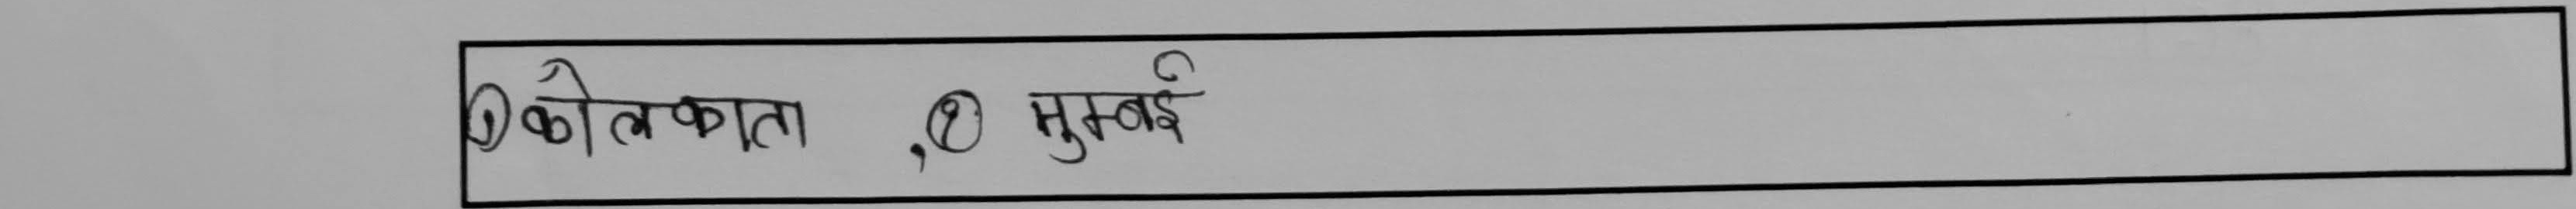 ① कोलकाता , ② मुम्बई